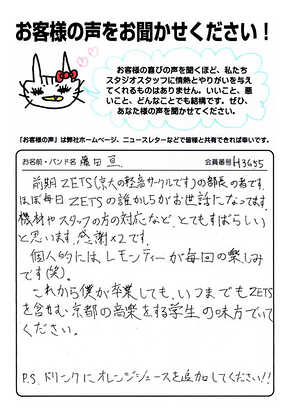 お客様の声をお聞かせください!
お客様の喜びの声を聞くほど、私たち
スタジオスタッフに情熱とやりがいを与え
てくれるものはありません。いいこと、悪
いこと、どんなことでも結構です。ぜひ、
あなた様の声をお聞かせください。
「お客様の声」は弊社ホームページ、ニュースレターなどで皆様と共有できれば幸いです。
お名前・バンド名 藤田 亘 会員番号 H3655
前期ZETS(京大の軽音サークルです)の部長の者です。
ほぼ毎日ZETSの誰かしらがお世話になってます。
機材やスタッフの方の対応など、とてもすばらしい
と思います。感謝×2です。
個人的には、レモンティーが毎回の楽しみ
です(笑)。
これから僕が卒業しても、いつまでもZETS
を含む、京都の音楽をする学生の味方でいて
ください。
P.S. ドリンクにオレンジジュースを追加してください!!